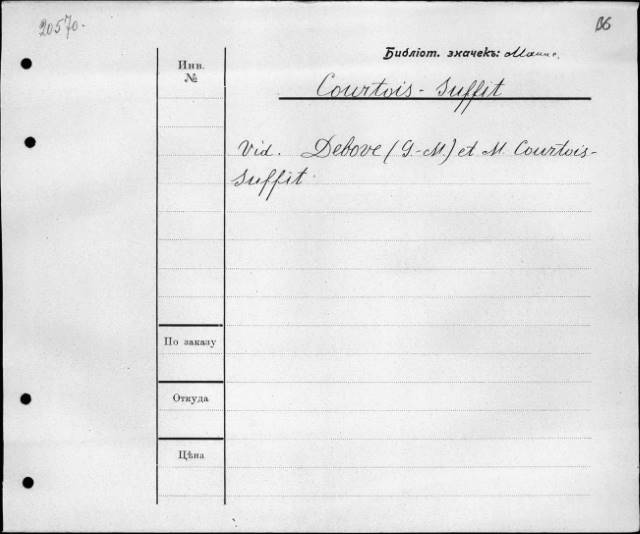 20570.
Библіот. значекъ:
Инв.
№
Courtois-Suffit
Vid. Debove (G.-M.) et M. Courtois-
Suffit.
По заказу
Откуда
Цѣна